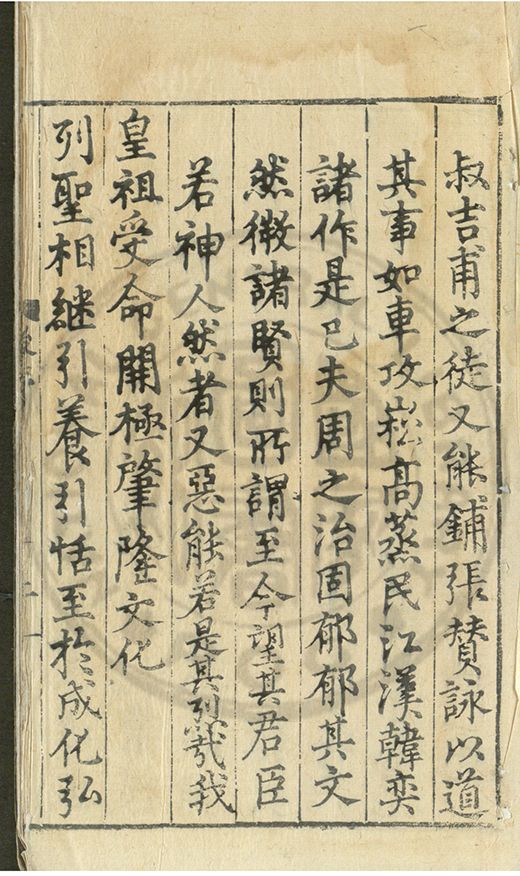 叔吉甫之徒又能鋪張贊詠以道
其事如車攻崧高蒸民江漢韓奕
諸作是已夫周之治固郁郁其文
然微諸賢則所謂至今望其君臣
若神人然者又惡能若是其烈哉我
皇祖受命開極肇隆文化
列聖相継引養引恬至於成化弘